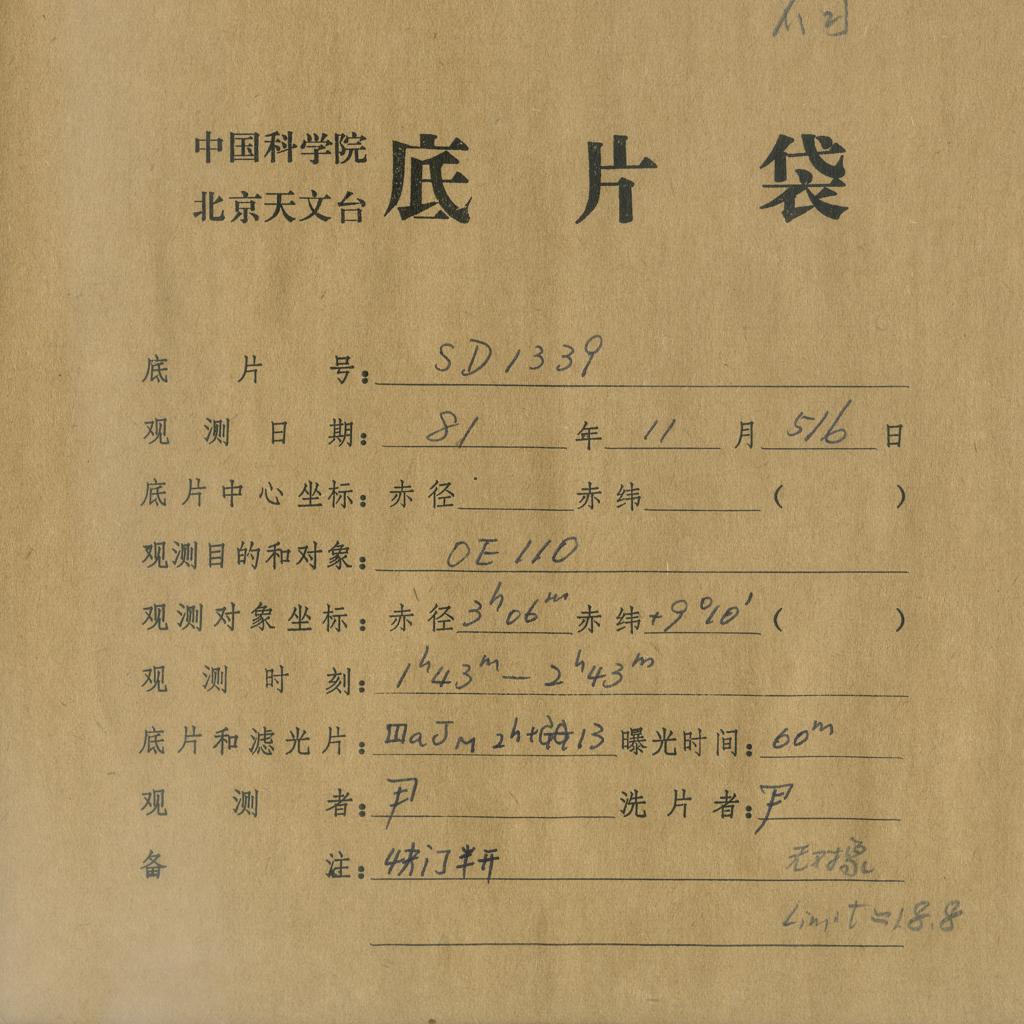 中国科学院
北京天文台
底片袋
底片号: SD1339
观测日期: 81年11月5/6日
底片中心坐标: 赤径 赤纬 ( )
观测目的和对象: OE 110
观测对象坐标: 赤径3ʰ06ᵐ赤纬+9°10′( )
观测时刻: 1ʰ43ᵐ—2ʰ43ᵐ
底片和滤光片: ⅢaJ M 2h+ 13 曝光时间: 60ᵐ
观测者: 尹 洗片者: 尹
备注: 快门半开 无对象
Limit=18.8